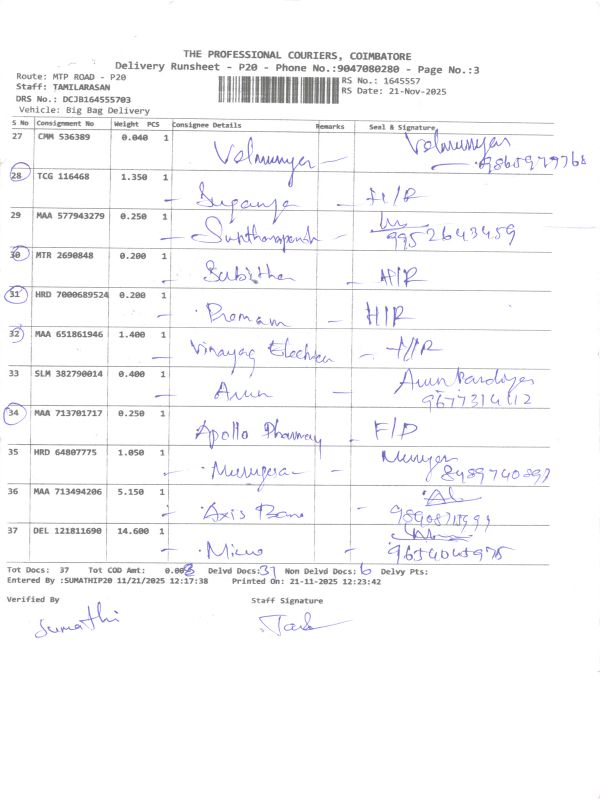 THE PROFESSIONAL COURIERS, COIMBATORE
Delivery Runsheet - P20 - Phone No.:9047080280 - Page No.:3
Route: MTP ROAD - P20
RS No.: 1645557
Staff: TAMILARASAN
RS Date: 21-Nov-2025
DRS No.: DCJB164555703
Vehicle: Big Bag Delivery
S No Consignment No Weight PCS Consignee Details Remarks Seal & Signature
27 CMM 536389 0.040 1 Velmurugan - Velmurugan
28 TCG 116468 1.350 1 - Suganya -
29 MAA 577943279 0.250 1 - - 9952643459
30 MTR 2690848 0.200 1 - Sabitha - H/R
31 HRD 7000689524 0.200 1 - - H/R
32 MAA 651861946 1.400 1 - Vinayag -
33 SLM 382790014 0.400 1 - Arun - Arun
34 MAA 713701717 0.250 1 Apollo Pharmacy - F/D
35 HRD 64807775 1.050 1 - -
36 MAA 713494206 5.150 1 - Axis -
37 DEL 121811690 14.600 1 - -
Tot Docs: 37 Tot COD Amt: Delvd Docs: Non Delvd Docs: 6 Delvy Pts:
Entered By :SUMATHIP20 11/21/2025 12:17:38 Printed On: 21-11-2025 12:23:42
Verified By Staff Signature
Sumathi